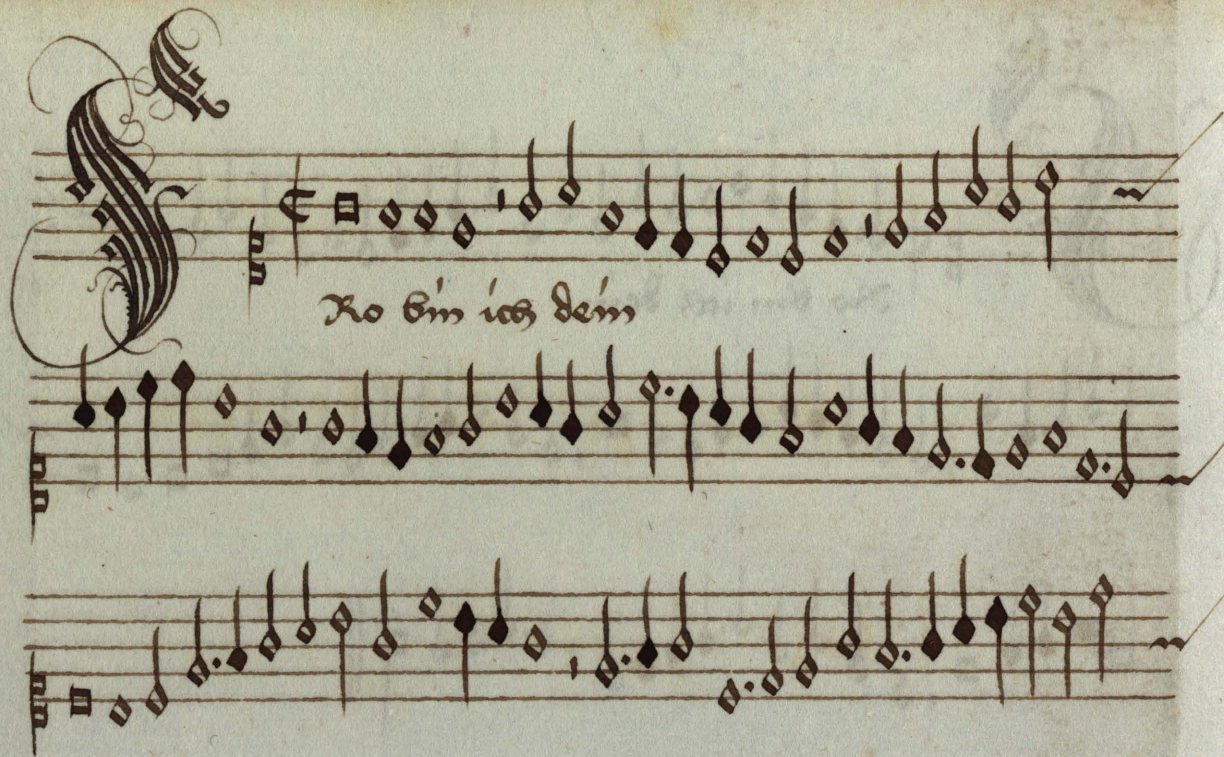 Ro bin ich dein